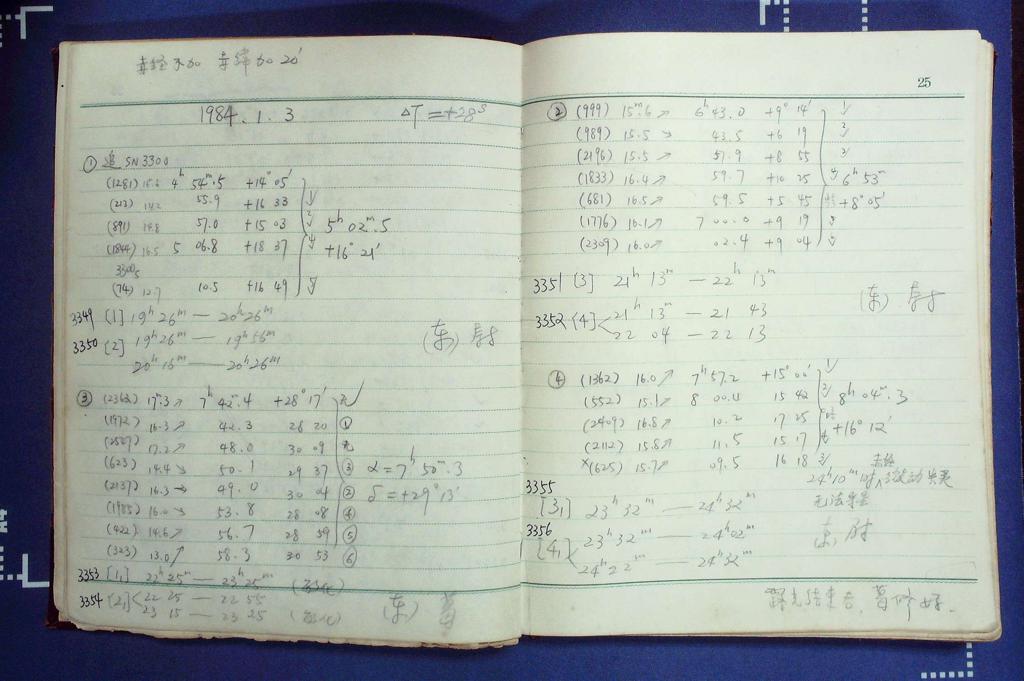 赤经不加 赤纬加20′
1984. 1. 3 ΔT=+28ˢ
① 追 SN3300
(1281) 15.6 4ʰ 54ᵐ.5 +14° 05′
(213) 14.2 55.9 +16 33
(891) 14.8 57.0 +15 03
(1844) 16.5 5 06.8 +18 37
3300s
(74) 12.7 10.5 +16 49
5ʰ 02ᵐ.5
+16° 21′
3349 [1] 19ʰ26ᵐ — 20ʰ26ᵐ
3350 [2] 19ʰ26ᵐ — 19ʰ56ᵐ
20ʰ16ᵐ — 20ʰ26ᵐ
(东)
③ (2362) 17ᵐ.3↗ 7ʰ 42ᵐ.4 +28° 17′
(1972) 16.3↗ 42.3 28 20 ①
(2507) 17.2↗ 48.0 30 09
(623) 14.4↘ 50.1 29 37 ③
(2137) 16.3→ 49.0 30 04 ②
(1985) 16.0↘ 53.8 28 08 ④
(422) 14.6↗ 56.7 28 59 ⑤
(323) 13.0↗ 58.3 30 53 ⑥
α=7ʰ50ᵐ.3
δ=+29°13′
3353 [1₁] 22ʰ25ᵐ — 23ʰ25ᵐ
3354 [2₁] 22 25 — 22 55
23 15 — 23 25
(东) 葛
25
② (999) 15ᵐ.6↗ 6ʰ43.0 +9° 14′ 1/
(989) 15.5↘ 43.5 +6 19 2/
(2196) 15.5↗ 51.9 +8 55 3/
(1833) 16.4↗ 59.7 +10 25
(681) 16.5↗ 59.5 +5 45
(1776) 16.1↗ 7 00.0 +9 19
(2309) 16.0↗ 02.4 +9 04
6ʰ53ᵐ
+8°05′
3351 [3] 21ʰ 13ᵐ — 22ʰ 13ᵐ
3352 [4] 21ʰ 13ᵐ — 21 43
22 04 — 22 13
(东)
④ (1362) 16.0↗ 7ʰ57.2 +15°00′ 1/
(552) 15.1↗ 8 00.4 15 42 2/
(2409) 16.8↗ 10.2 17 25
(2112) 15.8↗ 11.5 15 17
×(625) 15.7↗ 09.5 16 18 3/
8ʰ04ᵐ.3
+16°12′
赤经
24ʰ10ᵐ时∧微动失灵
无法导星
3355
[3₁] 23ʰ32ᵐ — 24ʰ32ᵐ
3356
[4₁] 23ʰ32ᵐ — 24ʰ02ᵐ
24ʰ22ᵐ — 24ʰ32ᵐ
东
曝光结束后, 葛修好.